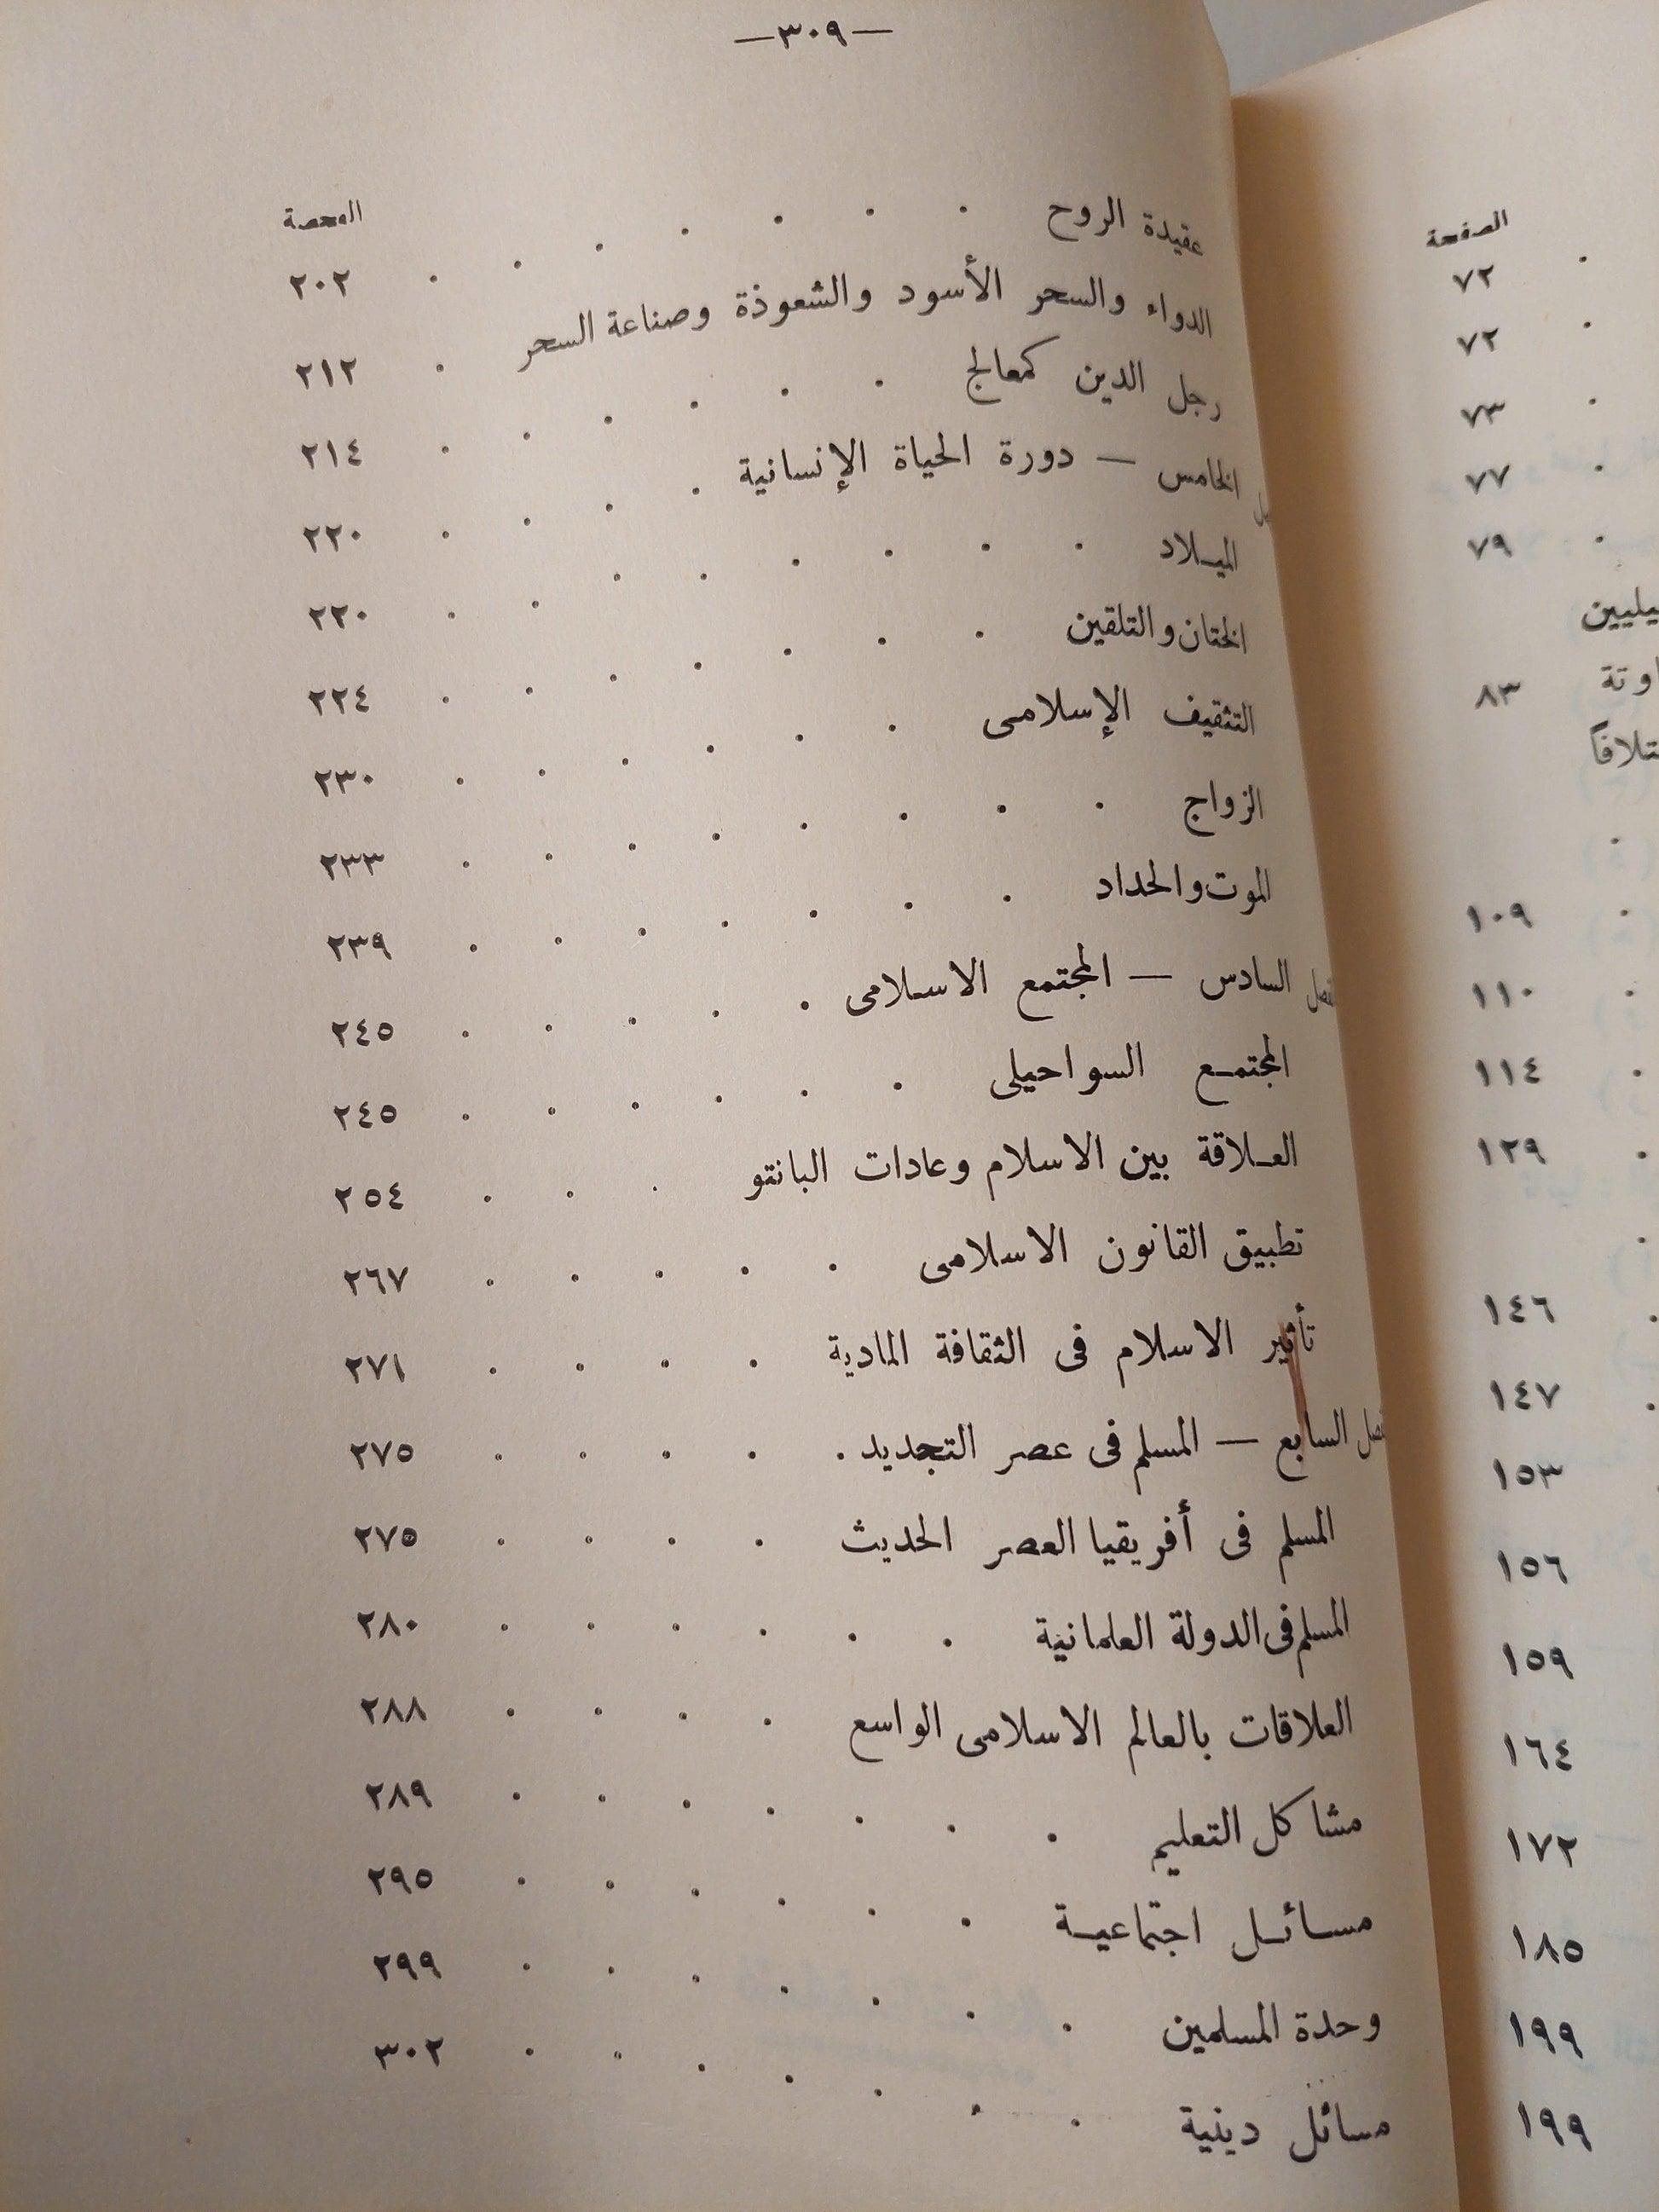 الصفحة
٧٢
٧٢
٧٣
٧٧
٧٩
٨٣
١٠٩
١١٠
١١٤
١٢٩
١٤٦
١٤٧
١٥٣
١٥٦
١٥٩
١٦٤
١٧٢
١٨٥
١٩٩
١٩٩
—٣٠٩—
الصفحة
عقيدة الروح . . . . . . . ٢٠٢
الدواء والسحر الأسود والشعوذة وصناعة السحر . ٢١٢
رجل الدين كمعالج . . . . . . ٢١٤
الخامس — دورة الحياة الإنسانية . . . . ٢٢٠
الميلاد . . . . . . . . ٢٢٠
الختان والتلقين . . . . . . . ٢٢٤
التثقيف الإسلامى . . . . . . ٢٣٠
الزواج . . . . . . . . ٢٣٣
الموت والحداد . . . . . . . ٢٣٩
السادس — المجتمع الاسلامى . . . . . ٢٤٥
المجتمع السواحيلى . . . . . . ٢٤٥
العلاقة بين الاسلام وعادات البانتو . . . ٢٥٤
تطبيق القانون الاسلامى . . . . . ٢٦٧
تأثير الاسلام فى الثقافة المادية . . . . ٢٧١
السابع — المسلم فى عصر التجديد . . . . . ٢٧٥
المسلم فى أفريقيا العصر الحديث . . . . ٢٧٥
المسلم فى الدولة العلمانية . . . . . . ٢٨٠
العلاقات بالعالم الاسلامى الواسع . . . . ٢٨٨
مشاكل التعليم . . . . . . . ٢٨٩
مسائل اجتماعية . . . . . . ٢٩٥
وحدة المسلمين . . . . . . . ٢٩٩
مسائل دينية . . . . . . . ٣٠٢